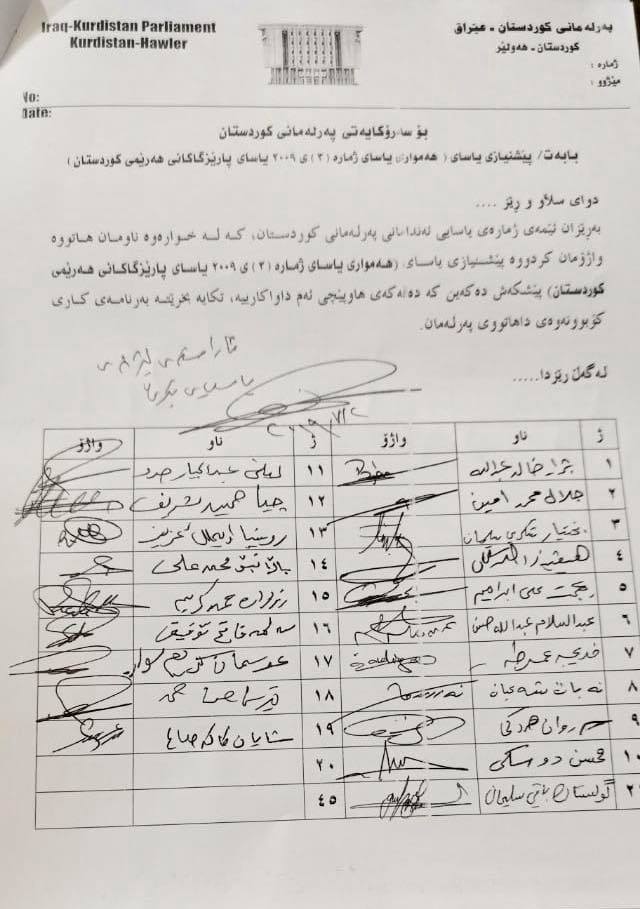 Iraq-Kurdistan Parliament
Kurdistan-Hawler
پەرلەمانی کوردستان - عێراق
کوردستان - هەولێر
ژمارە :
مێژوو :
No:
Date:
بۆ سەرۆکایەتی پەرلەمانی کوردستان
بابەت/ پێشنیازی یاسای ( هەمواری یاسای ژمارە (٢) ی ٢٠٠٩ یاسای پارێزگاکانی هەرێمی کوردستان )
دوای سڵاو و ڕێز ....
بەڕێزان ئێمەی ژمارەی یاسایی ئەندامانی پەرلەمانی کوردستان، کە لە خوارەوە ناومان هاتووە
واژۆمان کردووە پێشنیازی یاسای (هەمواری یاسای ژمارە (٢) ی ٢٠٠٩ یاسای پارێزگاکانی هەرێمی
کوردستان) پێشکەش دەکەین کە دەقەکەی هاوپێچی ئەم داواکارییە، تکایە بخرێتە بەرنامەی کاری
کۆبوونەوەی داهاتووی پەرلەمان.
لەگەڵ ڕێزدا.....
ئاراستەی لیژنەی
یاسایی بکرێ
٢٠١٩/٧/٢
ژ ناو واژۆ ژ ناو واژۆ
١ خالد عبدالله ١١ لیلى عبدالجبار صمد
٢ جلال محمد امین ١٢ جیا حمید شریف
٣ بختیار شکری سلمان ١٣ روینا عزیز
٤ ١٤ محمد علی
٥ علی ابراهیم ١٥ حمە کریم
٦ عبدالسلام عبدالله حسن ١٦ سەلمە فاتح توفیق
٧ خدیجە عمر طه ١٧ عوسمان کریم سوار
٨ نەبات شەعبان ١٨ حمد
٩ ڕێوان ١٩ شایان کاکە صالح
١٠ محسن دوسکی ٢٠
٢١ گولستان باقی سلیمان ٤٥